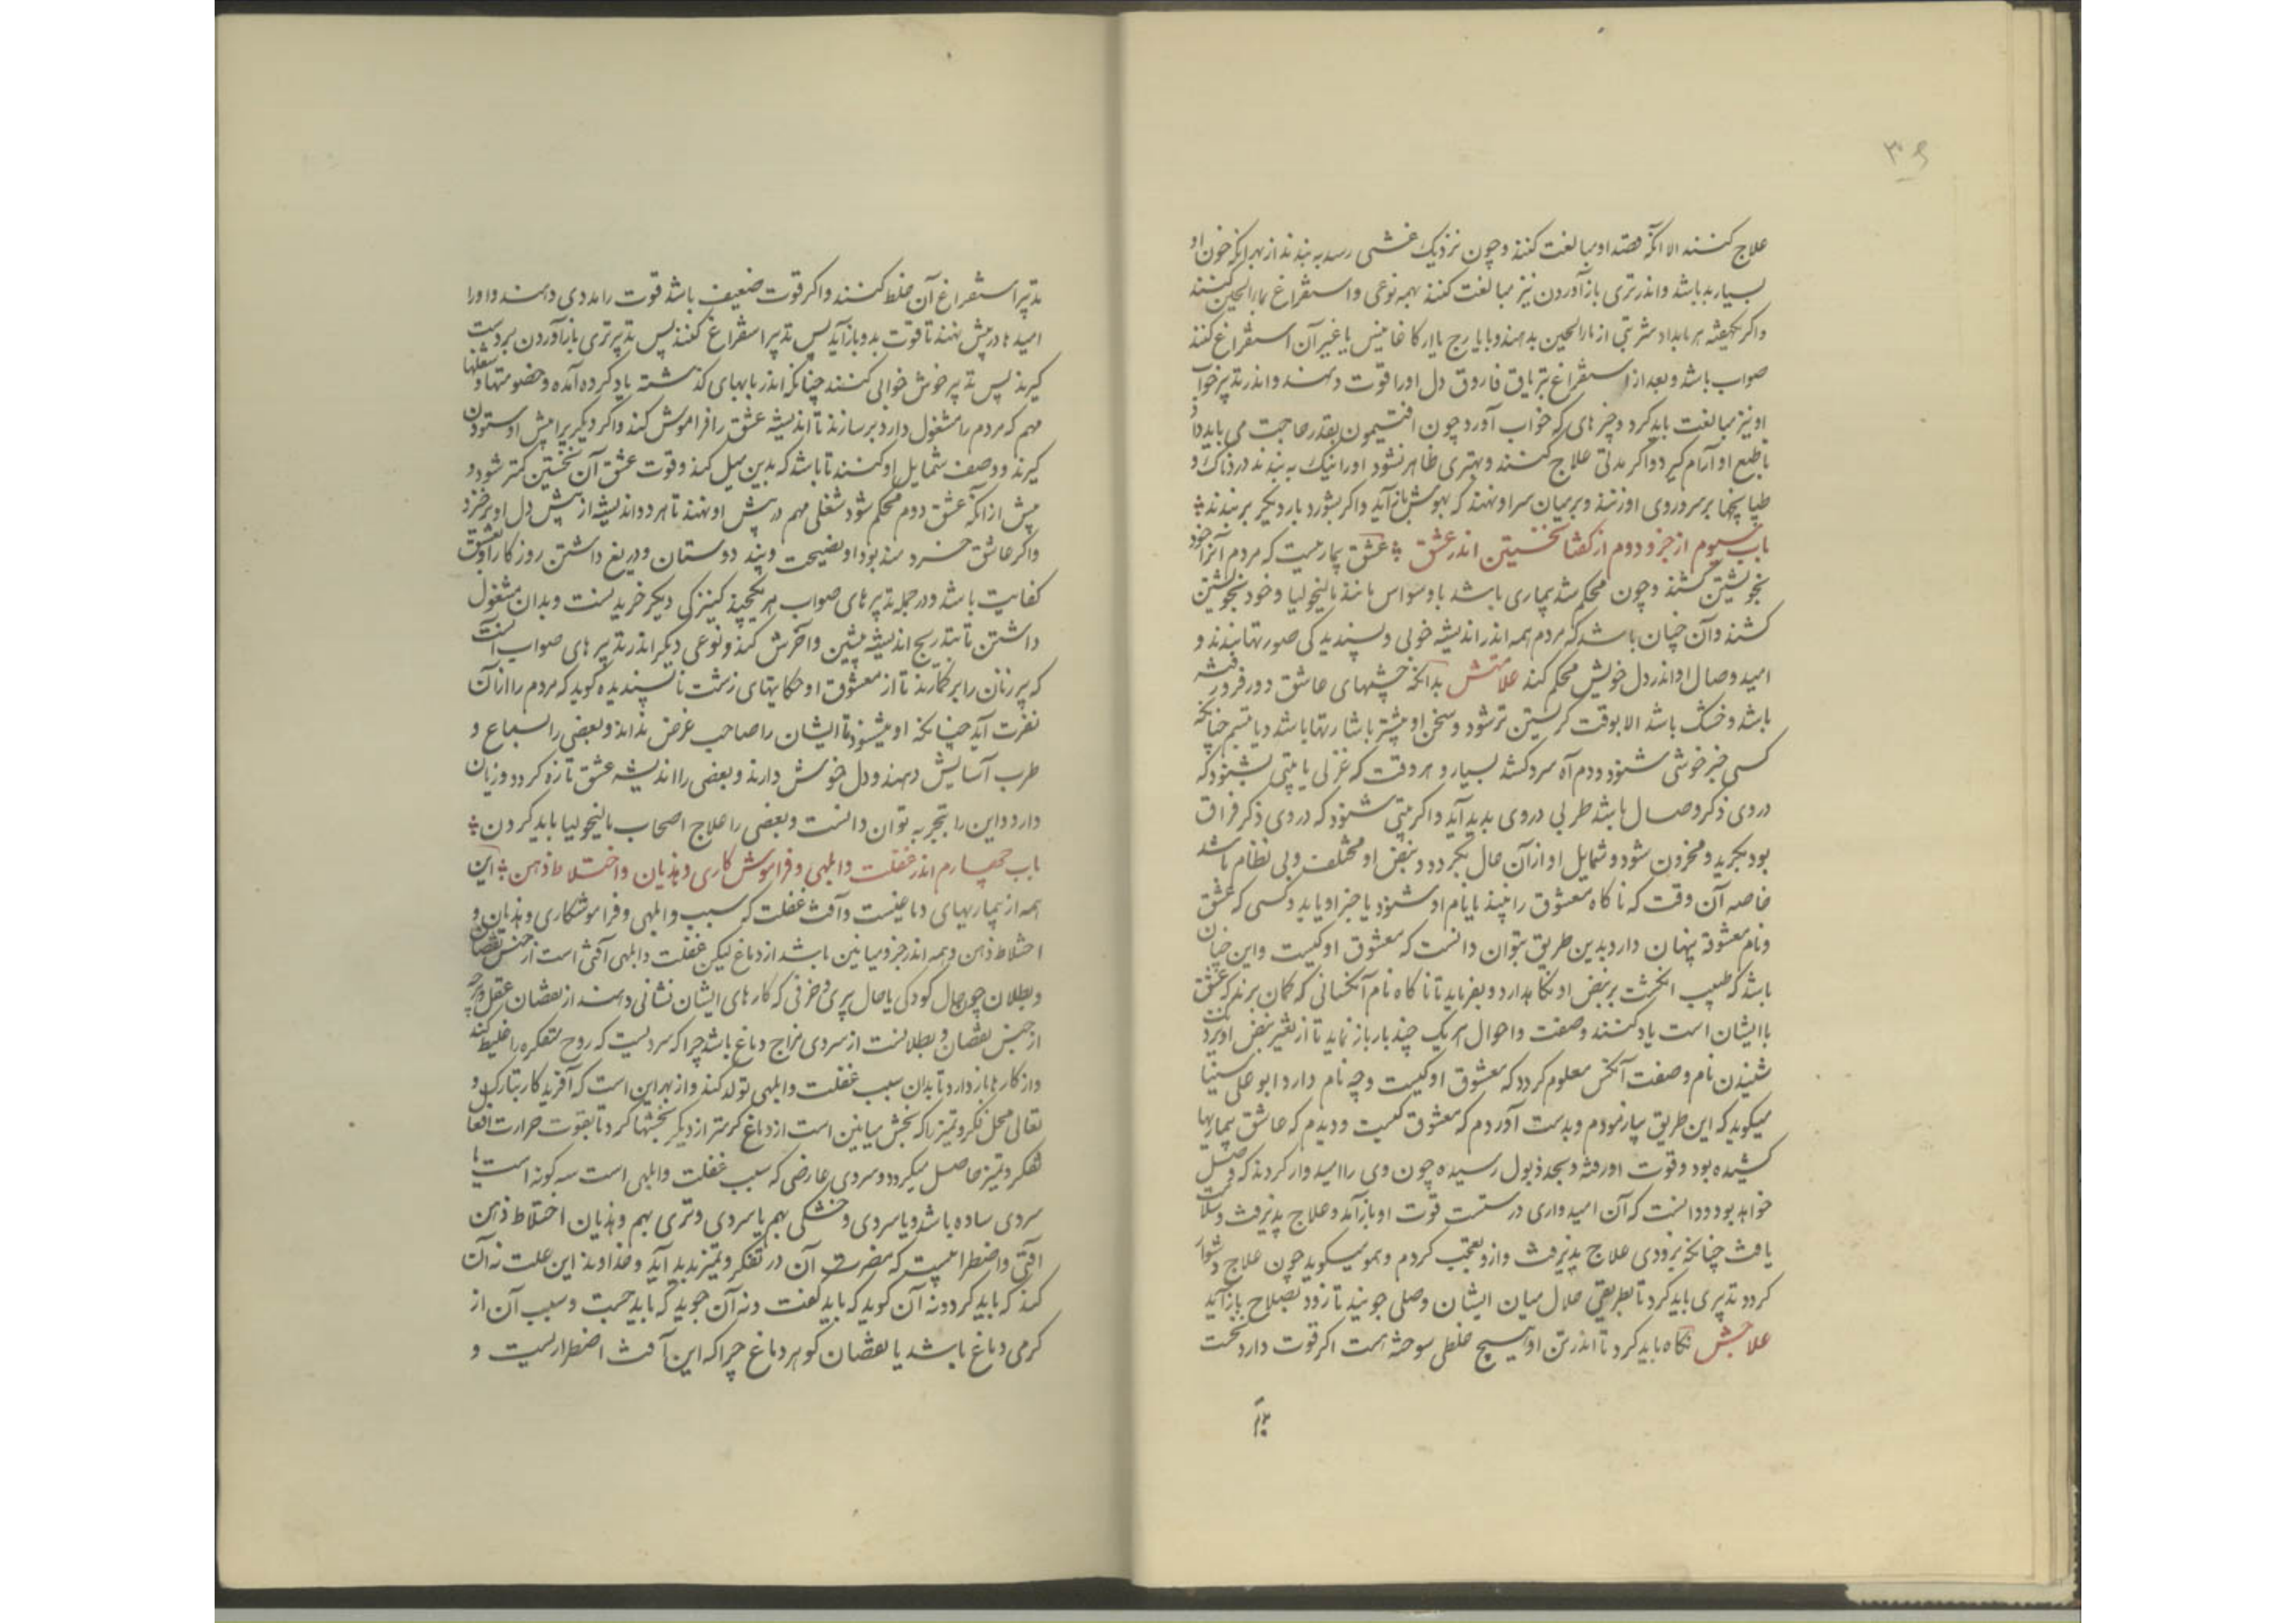 ۳۰۶
علاج کنند الا آنکه فصد او مبالغت کنند و چون نزدیک غشی رسد به بندند از بهر آنکه خون او
بسیار بد باشد و اندر تری باز آوردن نیز مبالغت کنند بهمه نوعی و استفراغ بماء الجبن کنند
واکر بکهفته هر بامداد شربتی از ماء الجبن بدهند و با یارج یا ارکاغانیس یا غیر آن استفراغ کنند
صواب باشد و بعد از استفراغ بتریاق فاروق دل او را قوت دهند و اندر تدبیر خواب
او نیز مبالغت باید کرد و چیزهای که خواب آورد چون افتیمون بقدر حاجت می باید داد
تا طبع او آرام کیرد و اکر مدتی علاج کنند و بهتری ظاهر نشود او را نیک به بندند دردناک و
طپانچها بر سر و روی او زنند و بر میان سر او نهند که بهوش باز آید و اکر بشورد بار دیکر برنهند
باب سیوم از جزو دوم از کفتار نخستین اندر عشق عشق بیماریست که مردم آنرا خود
بخویشتن کشند و چون محکم شد بیماری باشد با وسواس مانند مالیخولیا و خود بخویشتن
کشند و آن چنان باشد که مردم همه اندر اندیشه خوبی و پسندیدکی صورتها بندند و
امید وصال او اندر دل خویش محکم کند علامتش بدانکه چشمهای عاشق دور فرو رفته
باشد و خشک باشد الا بوقت کریستن تر شود و سخن او بیشتر باشارتها باشد و با تبسم چنانکه
کسی خبر خوشی شنود و دم آه سرد کشد بسیار و هر وقت که غزلی یا بیتی بشنود که
در وی ذکر وصال باشد طربی در وی بدید آید و اکر بیتی شنود که در وی ذکر فراق
بود بکرید و محزون شود و شمایل او از آن حال بکردد و نبض او مختلف و بی نظام باشد
خاصه آن وقت که ناکاه معشوق را بیند یا نام او شنود یا خبر او یابد و کسی که عشق
و نام معشوقه پنهان دارد بدین طریق بتوان دانست که معشوق او کیست و این چنان
باشد که طبیب انکشت بر نبض او نکاه بدارد و بفرماید تا ناکاه نام آنکسانی که کمان برند که عشق
با ایشان است یاد کنند و صفت و احوال هر یک چند بار باز نماید تا از تغیر نبض او بوقت
شنیدن نام و صفت آنکس معلوم کردد که معشوق او کیست و چه نام دارد ابو علی سینا
میکوید که این طریق بیازمودم و بدست آوردم که معشوق کیست و دیدم که عاشق بیماریها
کشیده بود و قوت او رفته و بحد ذبول رسیده چون وی را امیدوار کردند که وصل
خواهد بود و دانست که آن امیدواری درستست قوت او باز آمد و علاج پذیرفت و سلامت
یافت چنانکه بزودی علاج پذیرفت و از و تعجب کردم و همو میکوید چون علاج دشوار
کردد تدبیری باید کرد تا بطریقی حلال میان ایشان وصلی جویند تا زود بصلاح باز آید
علاجش نکاه باید کرد تا اندر تن او هیچ خلطی سوخته هست اکر قوت دارد نخست
تدبیر استفراغ آن خلط کنند و اکر قوت ضعیف باشد قوت را مددی دهند و او را
امیدها در پیش نهند تا قوت بدو باز آید پس تدبیر استفراغ کنند پس تدبیر تری باز آوردن بر دست
کیرند پس تدبیر خوش خوابی کنند چنانکه اندر بابهای کذشته یاد کرده آمده و خصومتها و شغلها
مهم که مردم را مشغول دارد بر سازند تا اندیشه عشق را فراموش کند و اکر دیکریرا پیش او ستودن
کیرند و وصف شمایل او کنند تا باشد که بدین میل کند و قوت عشق آن نخستین کمتر شود و
پیش از آنکه عشق دوم محکم شود شغلی مهم در پیش او نهند تا هر دو اندیشه از پیش دل او برخیزد
واکر عاشق خردمند بود او نصیحت و پند دوستان و دریغ داشتن روزکار او بعشق
کفایت باشد و در جمله تدبیرهای صواب هر یکچند کنیزکی دیکر خریدنست و بدان مشغول
داشتن تا بتدریج اندیشه پیشین و آخرش کند و نوعی دیکر اندر تدبیرهای صواب آنست
که پیر زنان را بر کمارند تا از معشوق او حکایتهای زشت ناپسندیده کوید که مردم را از آن
نفرت آید چنانکه او میشنود تا ایشان را صاحب غرض نداند و بعضی را سماع و
طرب آسایش دهند و دل خوش دارند و بعضی را اندیشه عشق تازه کردد و زیان
دارد و این را بتجربه توان دانست و بعضی را علاج اصحاب مالیخولیا باید کردن
باب چهارم اندر غفلت و ابلهی و فراموش کاری و هذیان و اختلاط ذهن این
همه از بیماریهای دماغیست و آفت غفلت که سبب و ابلهی و فراموشکاری و هذیان و
اختلاط ذهن و همه اندر جزو میانین باشد از دماغ لیکن غفلت و ابلهی آفتی است از جنس نقصان
و بطلان چون حال کودکی یا حال پیری و خرفی که کارهای ایشان نشانی دهند از نقصان عقل و هرچه
از جنس نقصان و بطلانست از سردی مزاج دماغ باشد چرا که سردیست که روح متفکره را غلیظ کند
و از کارها باز دارد تا بدان سبب غفلت و ابلهی تولد کند و از بهر این است که آفریدکار تبارک و
تعالی محل فکر و تمیز را که بخش میانین است از دماغ کرمتر از دیکر بخشها کرد تا بقوت حرارت افعال
تفکر و تمیز حاصل میکردد و سردی عارضی که سبب غفلت و ابلهی است سه کونه است یا
سردی ساده باشد و یا سردی و خشکی بهم یا سردی و تری بهم و هذیان اختلاط ذهن
آفتی و اضطرابیست که مضرت آن در تفکر و تمیز بدید آید و خداوند این علت نه آن
کند که باید کرد و نه آن کوید که باید کفت و نه آن جوید که باید جست و سبب آن از
کرمی دماغ باشد یا نقصان کوهر دماغ چرا که این آفت اضطراریست و